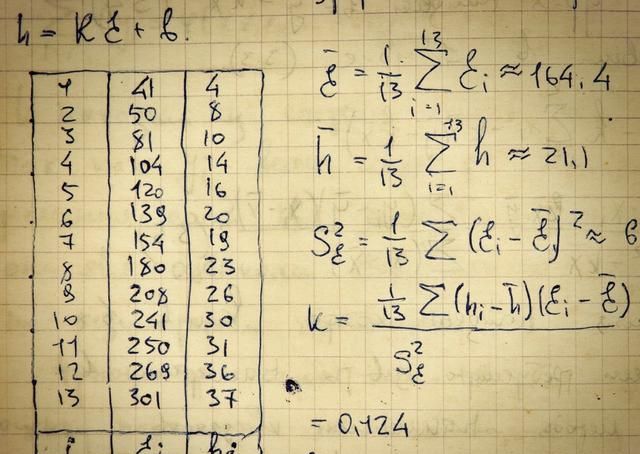 h = kℰ + b.
1 41 4
2 50 8
3 81 10
4 104 14
5 120 16
6 139 20
7 154 19
8 180 23
9 208 26
10 241 30
11 250 31
12 269 36
13 301 37
i ℰi hi
ℰ̄ = 1/13 ∑ᵢ₌₁¹³ ℰi ≈ 164,4
h̄ = 1/13 ∑ᵢ₌₁¹³ h ≈ 21,1
S²ℰ = 1/13 ∑ (ℰi - ℰ̄)² ≈ 6
k = 1/13 ∑ (hi - h̄)(ℰi - ℰ̄) / S²ℰ
= 0,124